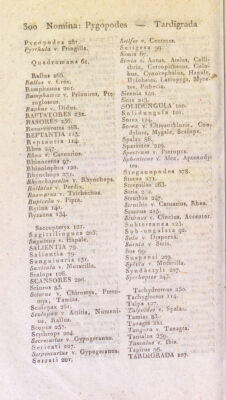 300 Nomina: Pygopodes — Tardigrada
Pygopodes 281.
Pyrrhula v. Fringilla.
Quadrumana 61.
Rallus 266.
Rallus v. Crex.
Ramphastos 202.
Ramphastos v. Prionites, Pteroglossus.
Raphus v. Didus.
RAPTATORES 232.
RASORES 236.
Recurvirostra 268.
REPTANTIA 113.
Reptantia 114.
Rhea 247.
Rhea v. Casuarius.
Rhinoceros 97.
Rhinolophus 120.
Rhynchops 271.
Rhynchopsalia v. Rhynchops.
Rollulus v. Perdix.
Rosmarus v. Trichechus.
Rupicola v. Pipra.
Rytina 141.
Ryzaena 134.
Saccopteryx 121.
Sagittilingues 208.
Saguinus v. Hapale.
SALIENTIA 79.
Salientia 79.
Sanguinaria 131.
Saxicola v. Motacilla.
Scalops 126.
SCANSORES 200.
Sciurus 83.
Sciurus v. Chiromys, Pteromys, Tamias.
Scolopax 261.
Scolopax v. Actitis, Numenius, Rallus.
Scopus 252.
Scythrops 204.
Secretarius v. Gypogeranus.
Sericati 227.
Serpentarius v. Gypogeranus.
Serrati 207.
Setifer v. Centetes.
Setigera 99.
Simia 67.
Simia v. Aotus, Ateles, Callithrix, Cercopithecus, Colobus, Cynocephalus, Hapale,
Hylobates, Lasiopyga, Mycetes, Pithecia.
Sirenia 140.
Sitta 213.
SOLIDUNGULA 100.
Solidungula 101.
Sorex 124.
Sorex v. Chrysochloris, Condylura, Mygale, Scalops.
Spalax 88.
Sparnius 229.
Spectrum v. Pteropus.
Spheniscus v. Alca, Aptenodytes.
Steganopodes 278.
Sterna 271.
Strepsilas 263.
Strix 232.
Struthio 247.
Struthio v. Casuarius, Rhea.
Sturnus 217.
Sturnus v. Cinclus, Accentor.
Subterranea 123.
Sub-ungulata 92.
Sula v. Dysporus.
Surnia v. Strix.
Sus 99.
Suspensi 209.
Sylvia v. Motacilla.
Syndactyli 207.
Syrrhaptes 247.
Tachydromus 250.
Tachyglossus 114.
Talpa 127.
Talpoides v. Spalax.
Tamias 83.
Tanagra 211.
Tangara v. Tanagra.
Tantalus 259.
Tantalus v. Ibis.
Tapirus 95.
TARDIGRADA 107.